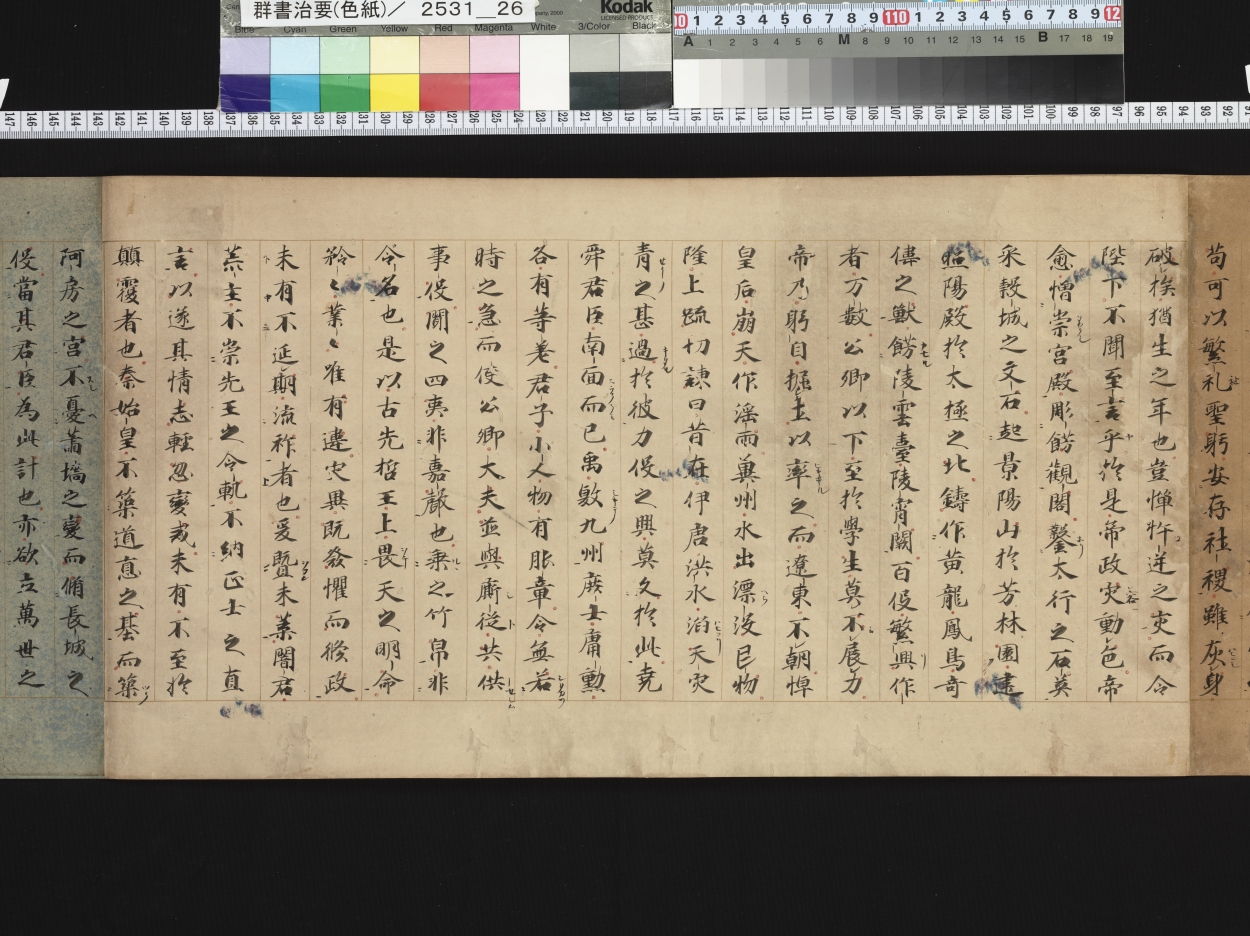 群書治要(色紙)／ 2531＿26
Kodak
LICENSED PRODUCT
Blue Cyan Green Yellow Red Magenta White 3/Color Black
苟可以繁礼聖躬安存社稷雖灰身
破族猶生之年也豈憚忤逆之災而令
陛下不聞至言乎於是帝政灾動色帝
愈憎崇宮殿彫餝觀閣鑿太行之石英
采穀城之文石起景陽山於芳林園建
照陽殿於太極之北鑄作黄龍鳳鳥奇
偉之獸餝陵雲臺陵霄闕百伇繁興作
者万數公卿以下至於學生莫不展力
帝乃躬自掘土以率之而遼東不朝悼
皇后崩天作滛雨冀州水出漂没巳物
隆上疏切諌曰昔在伊唐洪水滔天灾
青之甚過於彼力伇之興莫久於此堯
舜君臣南面而已禹敷九州庶士庸勳
各有等差君子小人物有服章今無若
時之急而使公卿大夫並與廝徒共供
事伇聞之四夷非嘉聲也乗之竹帛非
令名也是以古先哲王上畏天之明命
矜〻業〻唯有違灾異既發懼而脩政
未有不延期流祚者也爰曁末葉闇君
荒主不崇先王之令軌不納正士之直
言以遂其情志輕忽變戒未有不至於
顛覆者也秦始皇不築道悳之基而築
阿房之宮不憂蕭墻之變而脩長城之
伇當其君臣為此計也亦欲立萬世之